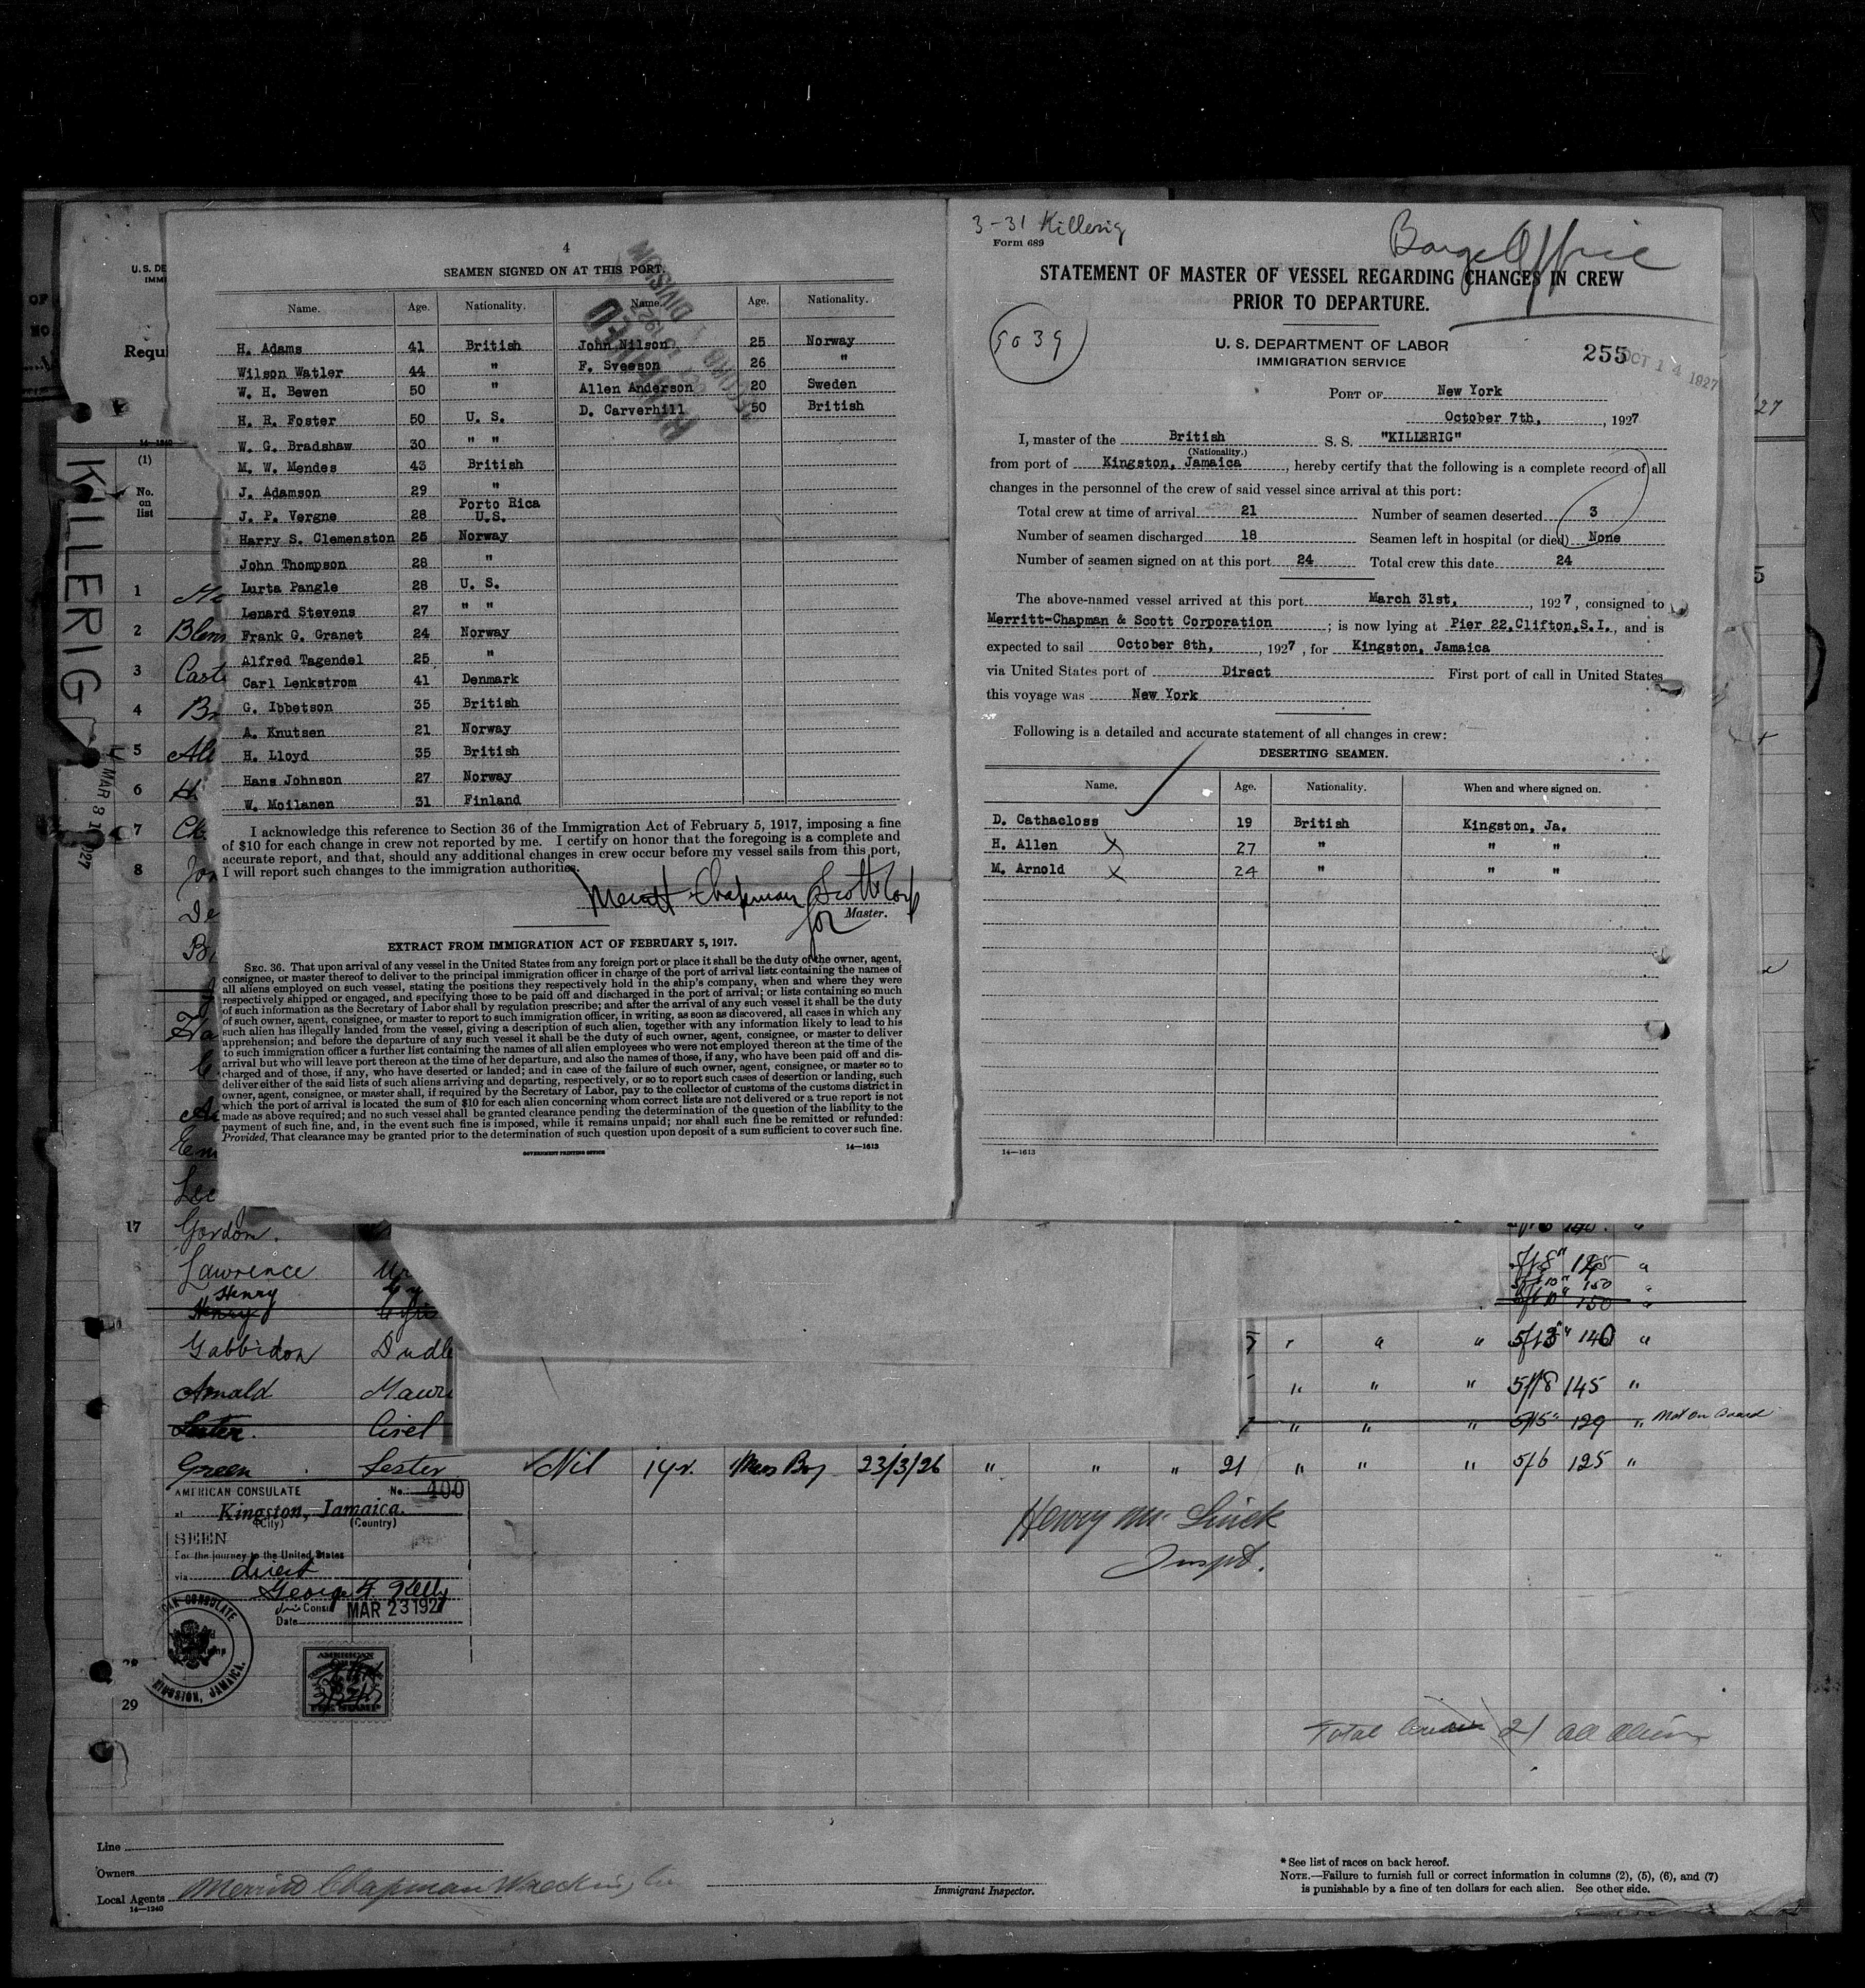 4
SEAMEN SIGNED ON AT THIS PORT.
Name. Age. Nationality. Name. Age. Nationality.
H. Adams 41 British John Nilson 25 Norway
Wilson Watler 44 " F. Sveeson 26 "
W. H. Bewen 50 " Allen Anderson 20 Sweden
H. R. Foster 50 U. S. D. Carverhill 50 British
W. G. Bradshaw 30 " "
M. W. Mendes 43 British
J. Adamson 29 "
J. P. Vergne 28 Porto Rica U.S.
Harry S. Clemenston 25 Norway
John Thompson 28 "
Lurta Pangle 28 U. S.
Lenard Stevens 27 " "
Frank G. Granet 24 Norway
Alfred Tagendel 25 "
Carl Lenkstrom 41 Denmark
G. Ibbetson 35 British
A. Knutsen 21 Norway
H. Lloyd 35 British
Hans Johnson 27 Norway
W. Moilanen 31 Finland
I acknowledge this reference to Section 36 of the Immigration Act of February 5, 1917, imposing a fine
of $10 for each change in crew not reported by me. I certify on honor that the foregoing is a complete and
accurate report, and that, should any additional changes in crew occur before my vessel sails from this port,
I will report such changes to the immigration authorities.
Merritt Chapman Scott Corp
for Master.
EXTRACT FROM IMMIGRATION ACT OF FEBRUARY 5, 1917.
SEC. 36. That upon arrival of any vessel in the United States from any foreign port or place it shall be the duty of the owner, agent,
consignee, or master thereof to deliver to the principal immigration officer in charge of the port of arrival lists containing the names of
all aliens employed on such vessel, stating the positions they respectively hold in the ship's company, when and where they were
respectively shipped or engaged, and specifying those to be paid off and discharged in the port of arrival; or lists containing so much
of such information as the Secretary of Labor shall by regulation prescribe; and after the arrival of any such vessel it shall be the duty
of such owner, agent, consignee, or master to report to such immigration officer, in writing, as soon as discovered, all cases in which any
such alien has illegally landed from the vessel, giving a description of such alien, together with any information likely to lead to his
apprehension; and before the departure of any such vessel it shall be the duty of such owner, agent, consignee, or master to deliver
to such immigration officer a further list containing the names of all alien employees who were not employed thereon at the time of the
arrival but who will leave port thereon at the time of her departure, and also the names of those, if any, who have been paid off and dis-
charged and of those, if any, who have deserted or landed; and in case of the failure of such owner, agent, consignee, or master so to
deliver either of the said lists of such aliens arriving and departing, respectively, or so to report such cases of desertion or landing, such
owner, agent, consignee, or master shall, if required by the Secretary of Labor, pay to the collector of customs of the customs district in
which the port of arrival is located the sum of $10 for each alien concerning whom correct lists are not delivered or a true report is not
made as above required; and no such vessel shall be granted clearance pending the determination of the question of the liability to the
payment of such fine, and, in the event such fine is imposed, while it remains unpaid; nor shall such fine be remitted or refunded:
Provided, That clearance may be granted prior to the determination of such question upon deposit of a sum sufficient to cover such fine.
GOVERNMENT PRINTING OFFICE 14—1613
3-31 Killerig
Form 689
Barge Office
STATEMENT OF MASTER OF VESSEL REGARDING CHANGES IN CREW
PRIOR TO DEPARTURE.
5039
U. S. DEPARTMENT OF LABOR
IMMIGRATION SERVICE
255 OCT 14 1927
PORT OF New York
October 7th, , 1927
I, master of the British S. S. "KILLERIG"
(Nationality.)
from port of Kingston, Jamaica , hereby certify that the following is a complete record of all
changes in the personnel of the crew of said vessel since arrival at this port:
Total crew at time of arrival 21 Number of seamen deserted 3
Number of seamen discharged 18 Seamen left in hospital (or died) None
Number of seamen signed on at this port 24 Total crew this date 24
The above-named vessel arrived at this port March 31st, , 1927, consigned to
Merritt-Chapman & Scott Corporation ; is now lying at Pier 22,Clifton,S.I., and is
expected to sail October 8th, , 1927, for Kingston, Jamaica
via United States port of Direct First port of call in United States
this voyage was New York
Following is a detailed and accurate statement of all changes in crew:
DESERTING SEAMEN.
Name. Age. Nationality. When and where signed on.
D. Cathacloss 19 British Kingston, Ja.
H. Allen X 27 " " "
M. Arnold X 24 " " "
14—1613
U.S. DE
IMMI
Requ
14—1240
(1)
No.
on
list
KILLERIG
MAR 31 1927
1
2 Blem
3 Cast
4 Br
5 All
6 H
7 Ch
8 Jon
De
Em
Lee
17 Gordon.
Lawrence 5/8" 145 "
Henry 5/10" 150 "
Henry 5/10" 150 "
Gabbidon Dudl 5/3" 140 "
Arnald Mauri " " " 5/8 145 "
Lester. Cirel " " " 5/5" 129 " Not on Board
Green Lester Nil 1yr. Mess Boy 23/3/26 " " " 21 " " " 5/6 125 "
AMERICAN CONSULATE No. 400
at Kingston, Jamaica.
(City) (Country)
SEEN
For the journey to the United States
via direct
George F. Kelly
Consul
Date MAR 23 1927
CONSULATE
KINGSTON, JAMAICA.
AMERICAN
FEE STAMP
Henry
Inspt.
29
Total 21 all aliens
Line
Owners
Local Agents Merritt Chapman Wrecking Co
14—1240
Immigrant Inspector.
* See list of races on back hereof.
NOTE.—Failure to furnish full or correct information in columns (2), (5), (6), and (7)
is punishable by a fine of ten dollars for each alien. See other side.